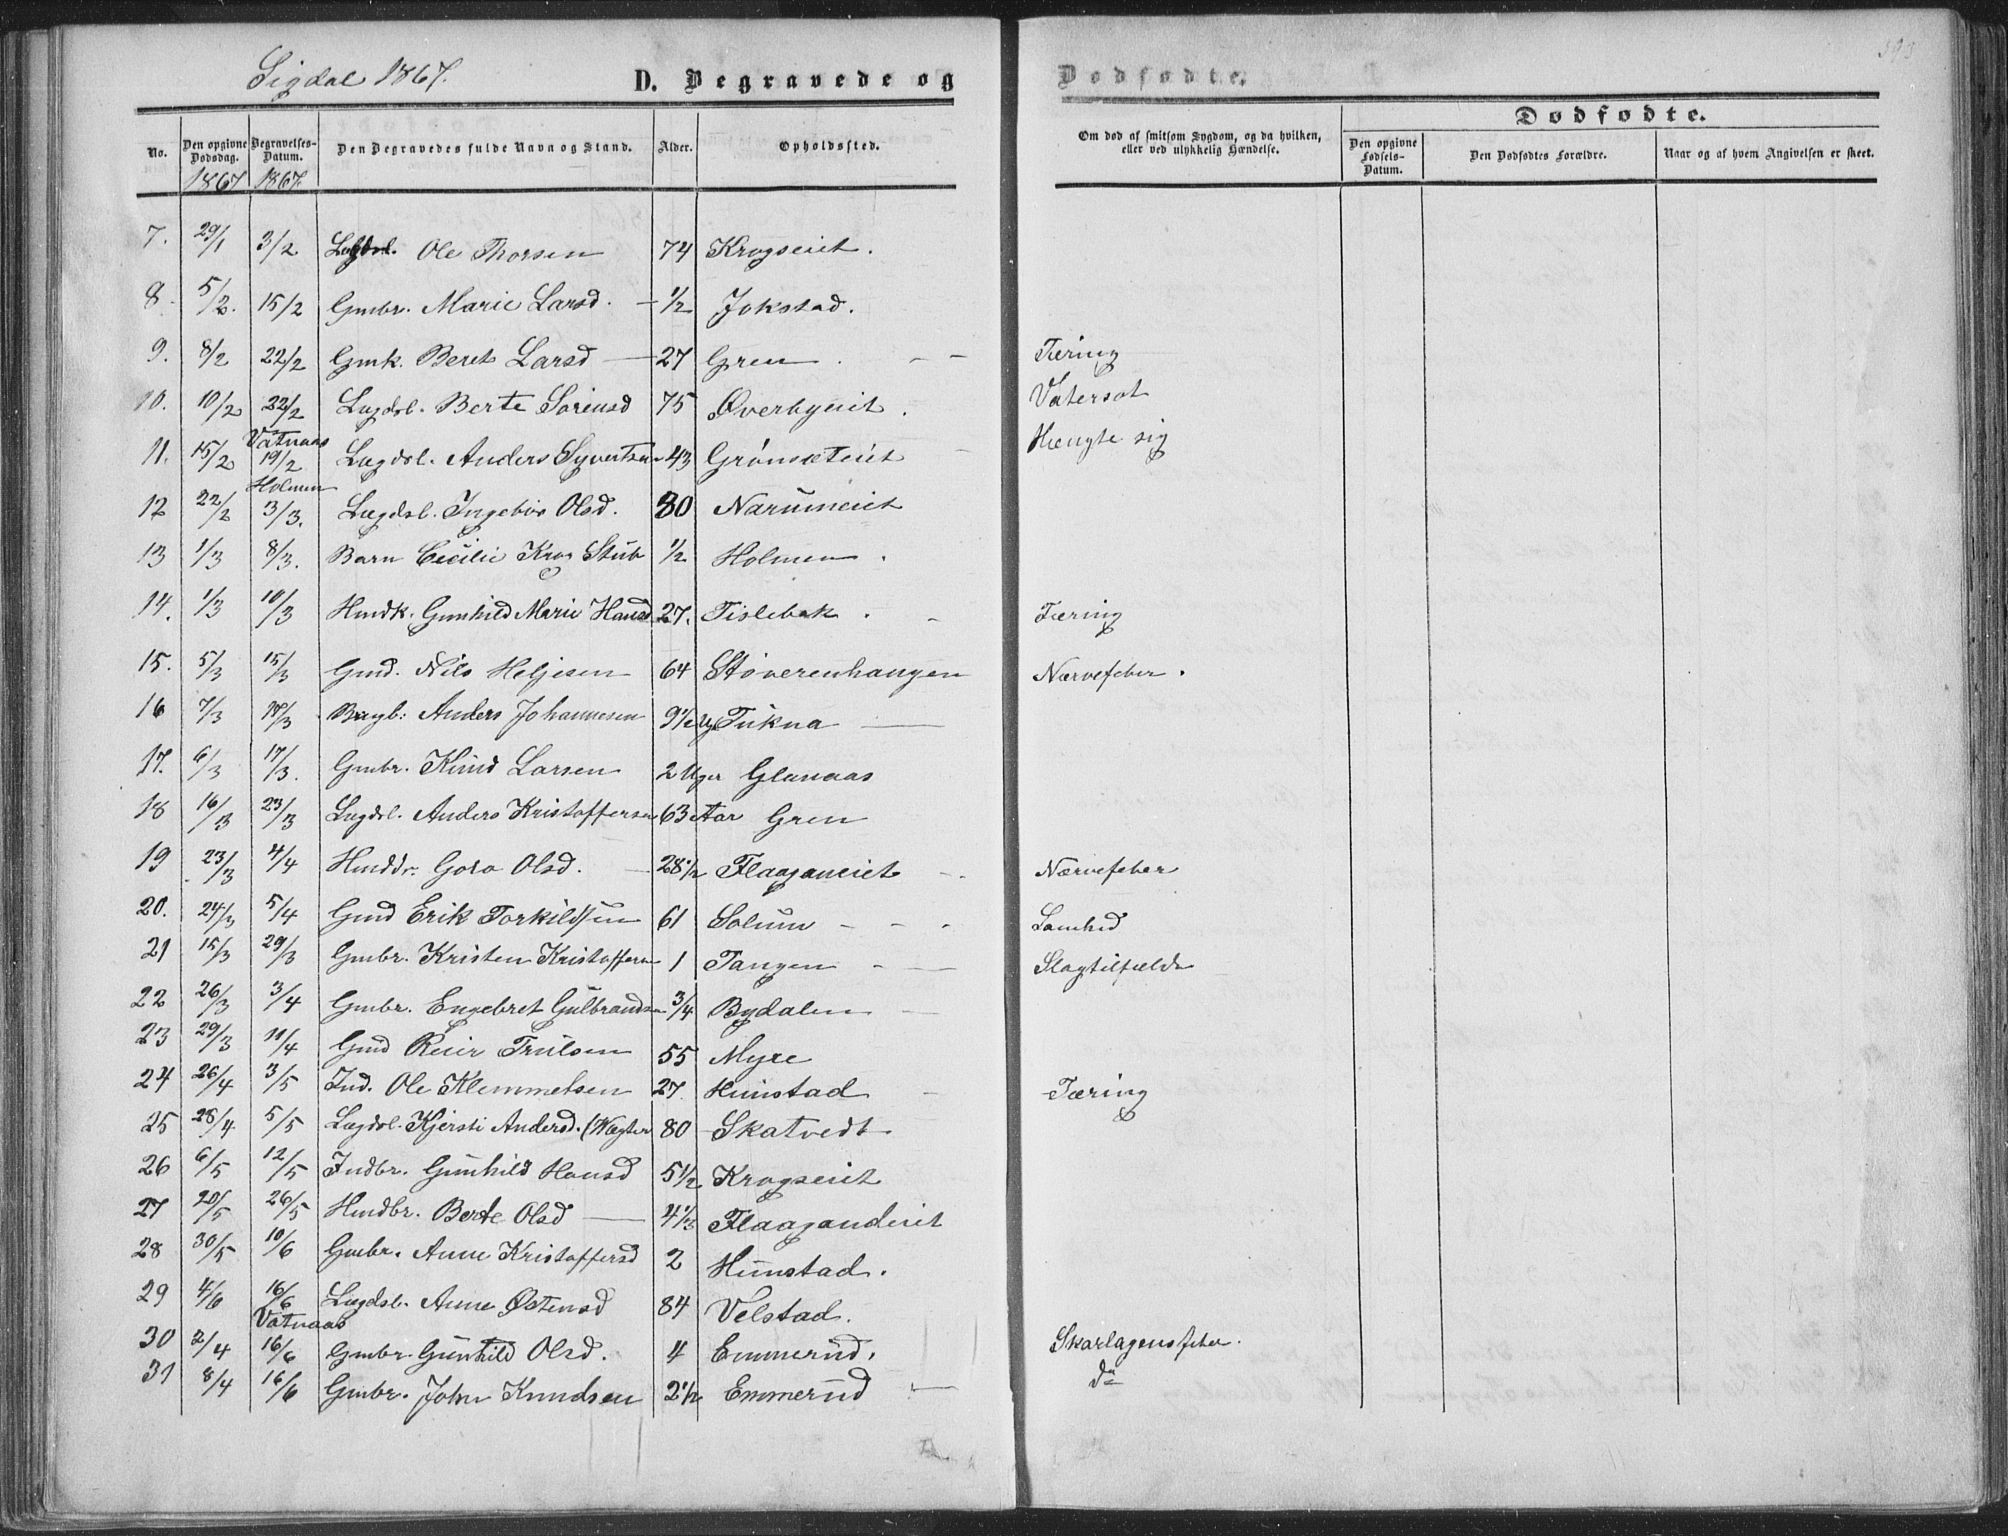 Sigdal 1867.
D. Begravede og
Dødfødte.
393
No. Den opgivne Dødsdag. Begravelses-Datum. Den Begravedes fulde Navn og Stand. Alder. Opholdssted. Om død af smitsom Sygdom, og da hvilken, eller ved ulykkelig Hændelse.
Dødfødte.
Den opgivne Fødsels-Datum. Den Dødfødtes Forældre. Naar og af hvem Angivelsen er skeet.
1867 1867.
7. 29/1 3/2 Lægdsl. Ole Thorsen 74 Krogseiet.
8. 5/2. 15/2 Gmbr. Marie Larsd. — 1/2 Jokstad.
9. 8/2 22/2 Gmk. Beret Larsd — 27 Gren . — — Tæring
10. 10/2 22/2 Lægdsl. Berte Sørensd 75 Øverbyeiet . Vatersot
11. 15/2 Vatnaas 19/2 Lægdsl. Anders Syvertsen 43 Grønseteiet — Hængte sig
12 22/2 Holmen 3/3. Lægdsl. Ingebor Olsd. 80 Narumeiet
13 1/3 8/3. Barn Cicilie Krog Stub 1/2 Holmen .
14. 1/3 10/3 Hmdk. Gunhild Marie Hansd 27. Tislebak . — Tæring
15. 5/3 15/3 Gmd. Nils Helgesen 64 Støverenhaugen Nærvefeber .
16 7/3 17/3 Bugb: Anders Johannesen 9 1/2 Ug Tukna —
17. 6/3 17/3. Gmbr. Knud Larsen 2 Uger Glanaas
18 16/3 23/3 Lægdsl. Anders Kristoffersen 63 Aar Gren
19 23/3 4/4 Hmddr. Goro Olsd. — 28 1/2 Flaaganeiet — . Nærvefeber
20. 24/3 5/4 Gmd Erik Torkildssen 61 Solum — — — Lamhed
21 15/3 29/3 Gmbr. Kristen Kristoffersen 1 Tangen — — Slagtilfælde
22 26/3 3/4 Gmbr. Engebret Gulbrandsen 3/4 Bydalen —
23 29/3 11/4 Gmd Reier Trulsen 55 Myre
24 26/4 3/5 Ind. Ole Klemmetsen 27. Hunstad — Tæring
25 28/4 5/5 Lægdsl. Kjersti Andersd. (Vægter 80 Skatvedt
26 6/5 12/5 Indbr. Gunhild Hansd 5 1/2 Krogseiet
27 20/5 26/5 Hmdbr. Berte Olsd — 4 1/3 Flaagandeiet
28 30/5 10/6 Gmbr. Anne Kristoffersd 2 Hunstad.
29 4/6 16/6 Lægdsl. Anne Østensd 84 Velstad.
30 2/4 Vatnaas 16/6 Gmbr. Gunhild Olsd. 4 Emmerud. Skarlagensfeber.
31 8/4 16/6 Gmbr. John Knudsen 2 1/2 Emmerud — do